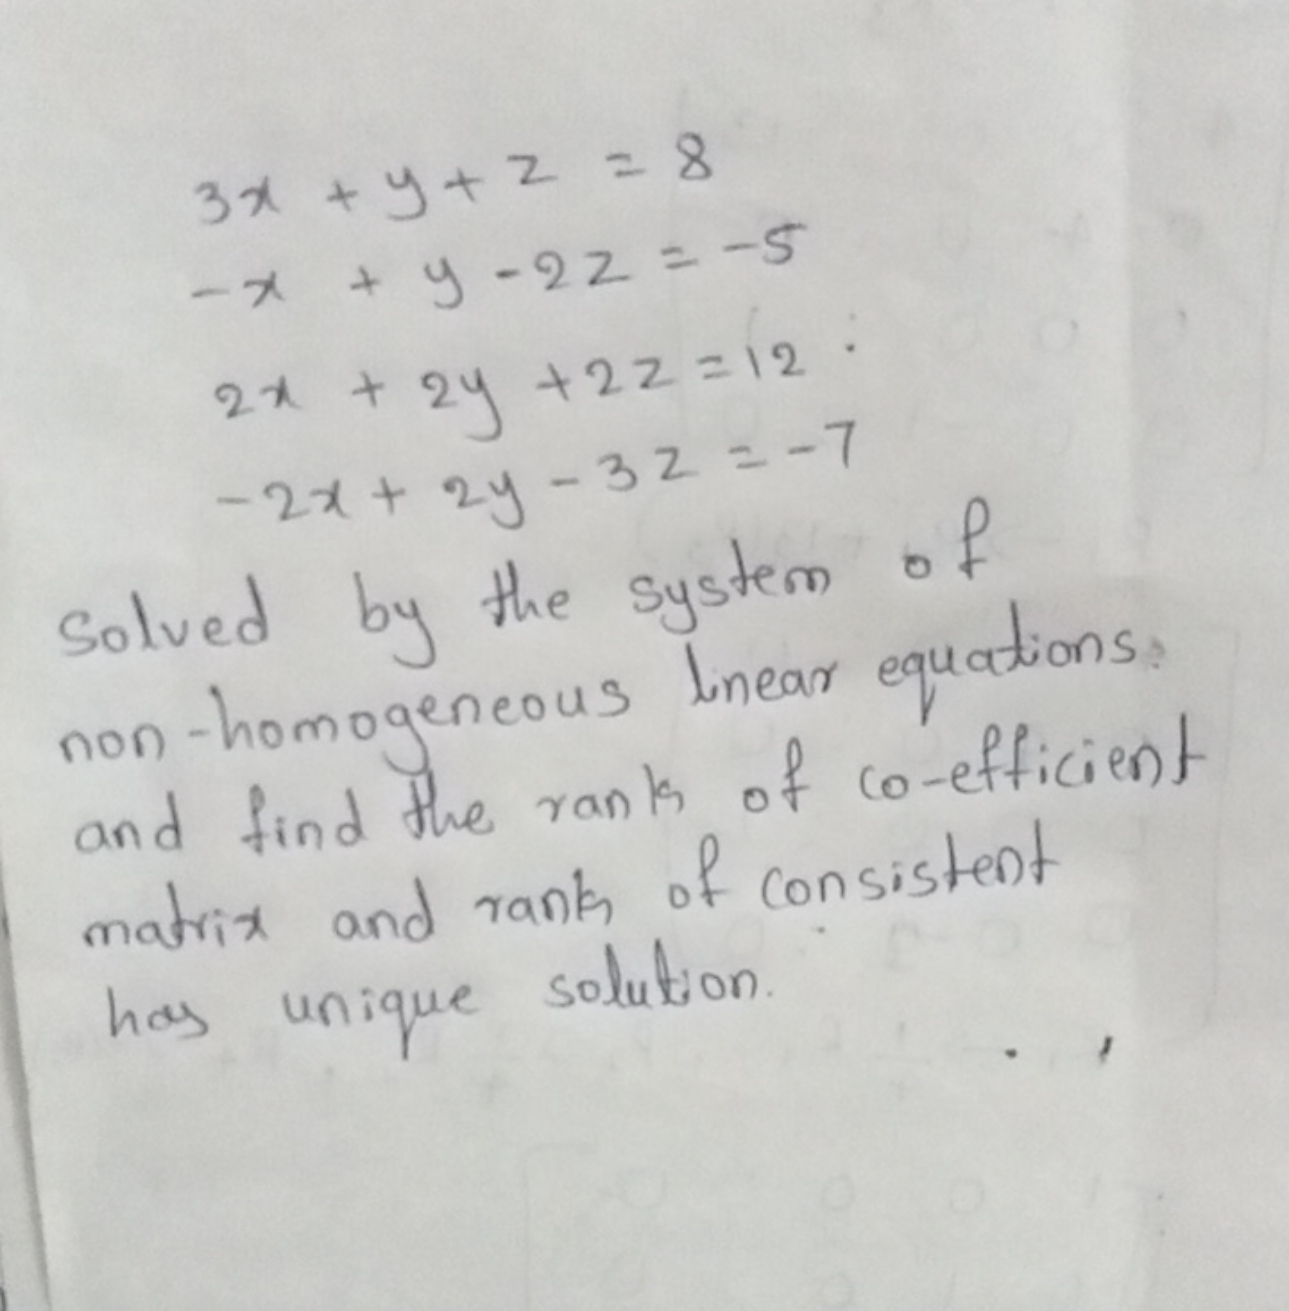 3x + y + z = 8
-x + y - 2z = -5
2x + 2y + 2z = 12
-2x + 2y - 3z = -7
Solved by the system of
non-homogeneous linear equations.
and find the rank of co-efficient
matrix and rank of consistent
has unique solution.